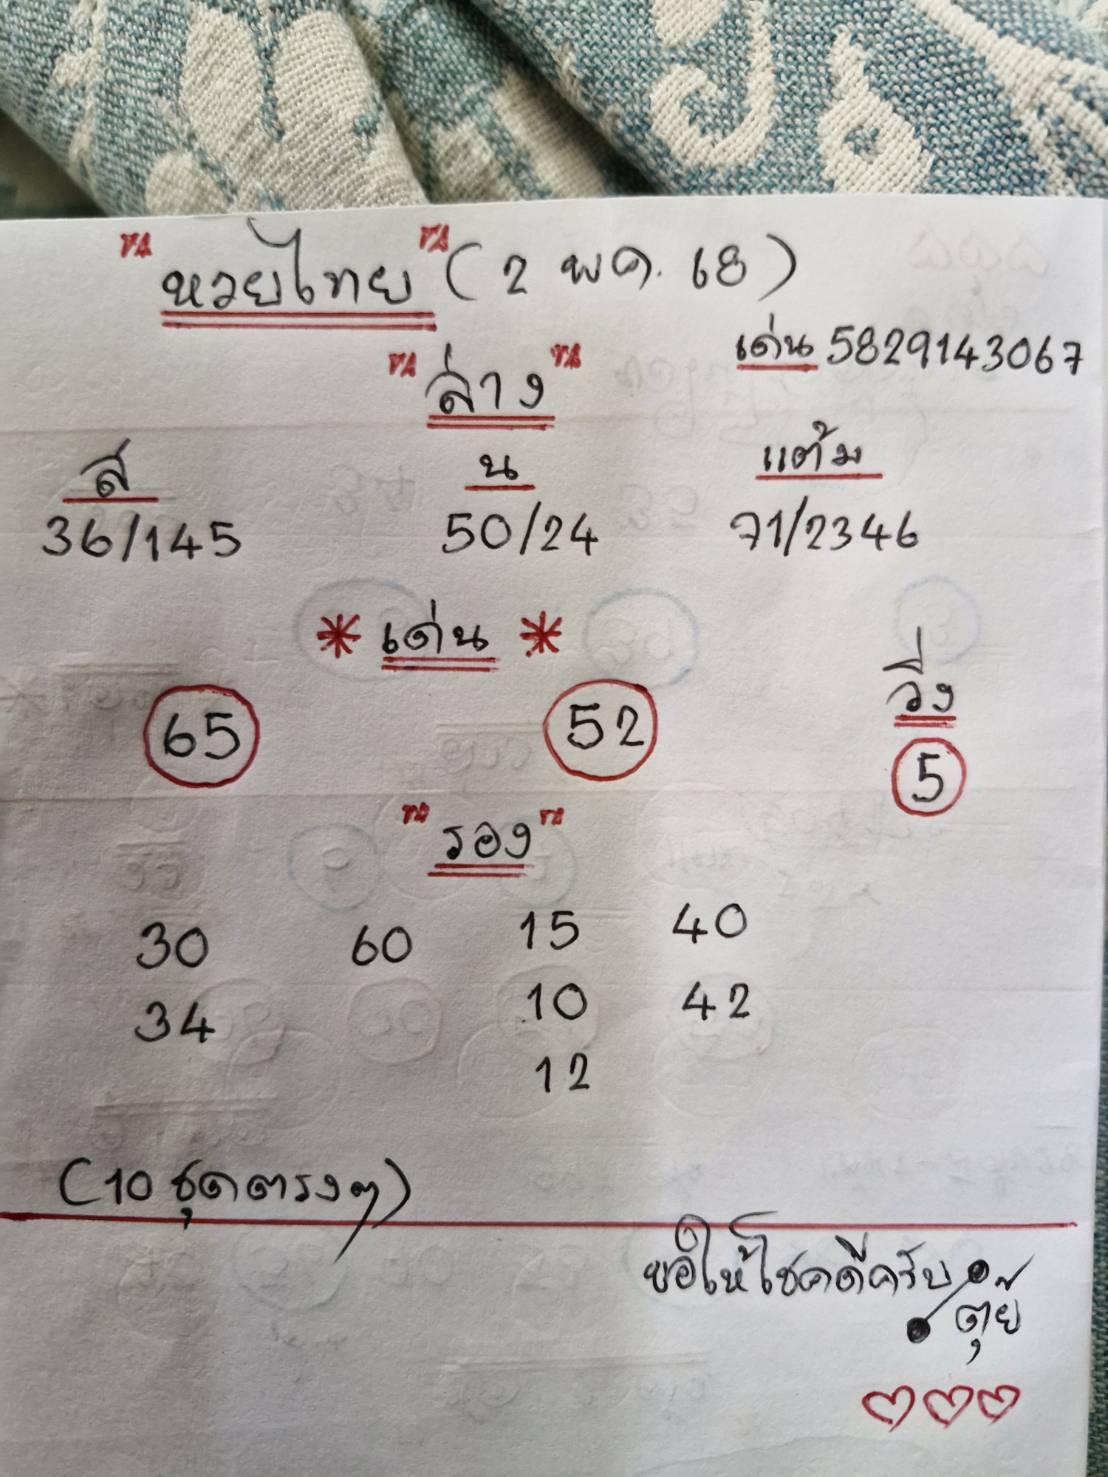 "หวยไทย" (2 พค. 68)
เด่น 5829143067
"ล่าง"
ส น แต้ม
36/145 50/24 71/2346
* เด่น *
วิ่ง
65 52
5
"รอง"
30 60 15 40
34 10 42
12
(10 ชุดตรงๆ)
ขอให้โชคดีครับ
ตุ้ย